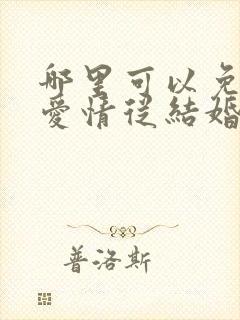 哪里可以免
愛情從結婚
普洛斯